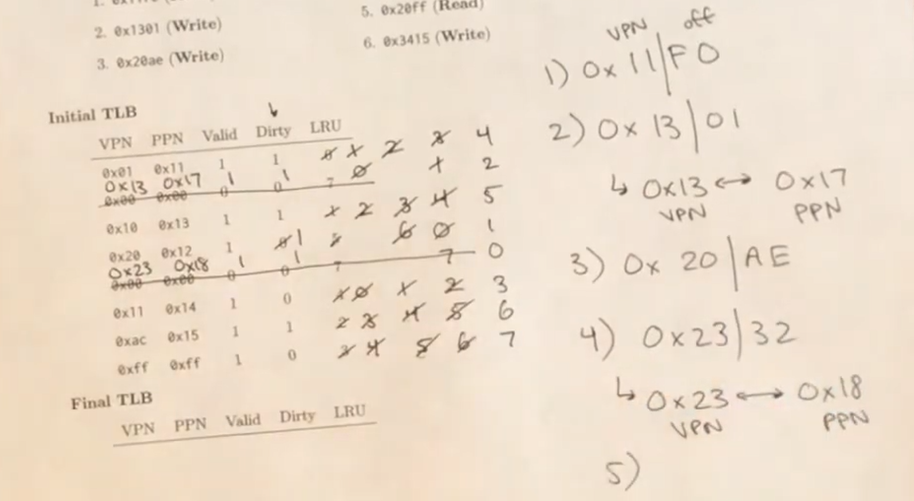 2. 0x1301 (Write)
3. 0x20ae (Write)
5. 0x20ff (Read)
6. 0x3415 (Write)
Initial TLB
VPN PPN Valid Dirty LRU
0x01 0x11 1 1 0 1 2 3 4
0x13 0x17 1 1 0 1 2
0x00 0x00 0 0 7
0x10 0x13 1 1 1 2 3 4 5
0x20 0x12 1 0 1 0 1
0x23 0x18 1 1 7 0
0x00 0x00 0 0 7
0x11 0x14 1 0 0 1 2 3
0xac 0x15 1 1 2 3 4 5 6
0xff 0xff 1 0 3 4 5 6 7
Final TLB
VPN PPN Valid Dirty LRU
VPN off
1) 0x 11|F0
2) 0x 13|01
↳ 0x13 ↔ 0x17
VPN PPN
3) 0x 20|AE
4) 0x23|32
↳ 0x23 ↔ 0x18
VPN PPN
5)